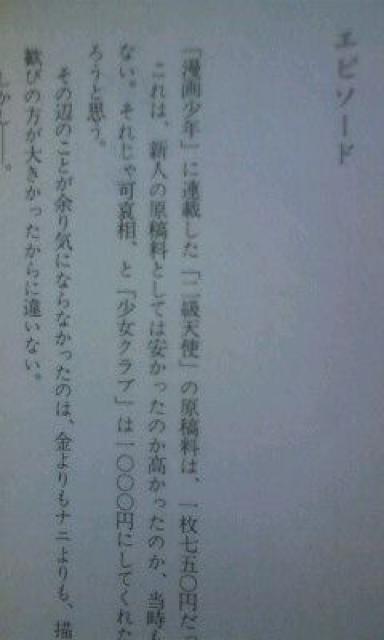 エピソード
『漫画少年』に連載した『二級天使』の原稿料は、一枚七五〇円だっ
これは、新人の原稿料としては安かったのか高かったのか、当時も
ない。それじゃ可哀相、と『少女クラブ』は一〇〇〇円にしてくれた
ろうと思う。
その辺のことが余り気にならなかったのは、金よりもナニよりも、描
歓びの方が大きかったからに違いない。
しかし――。